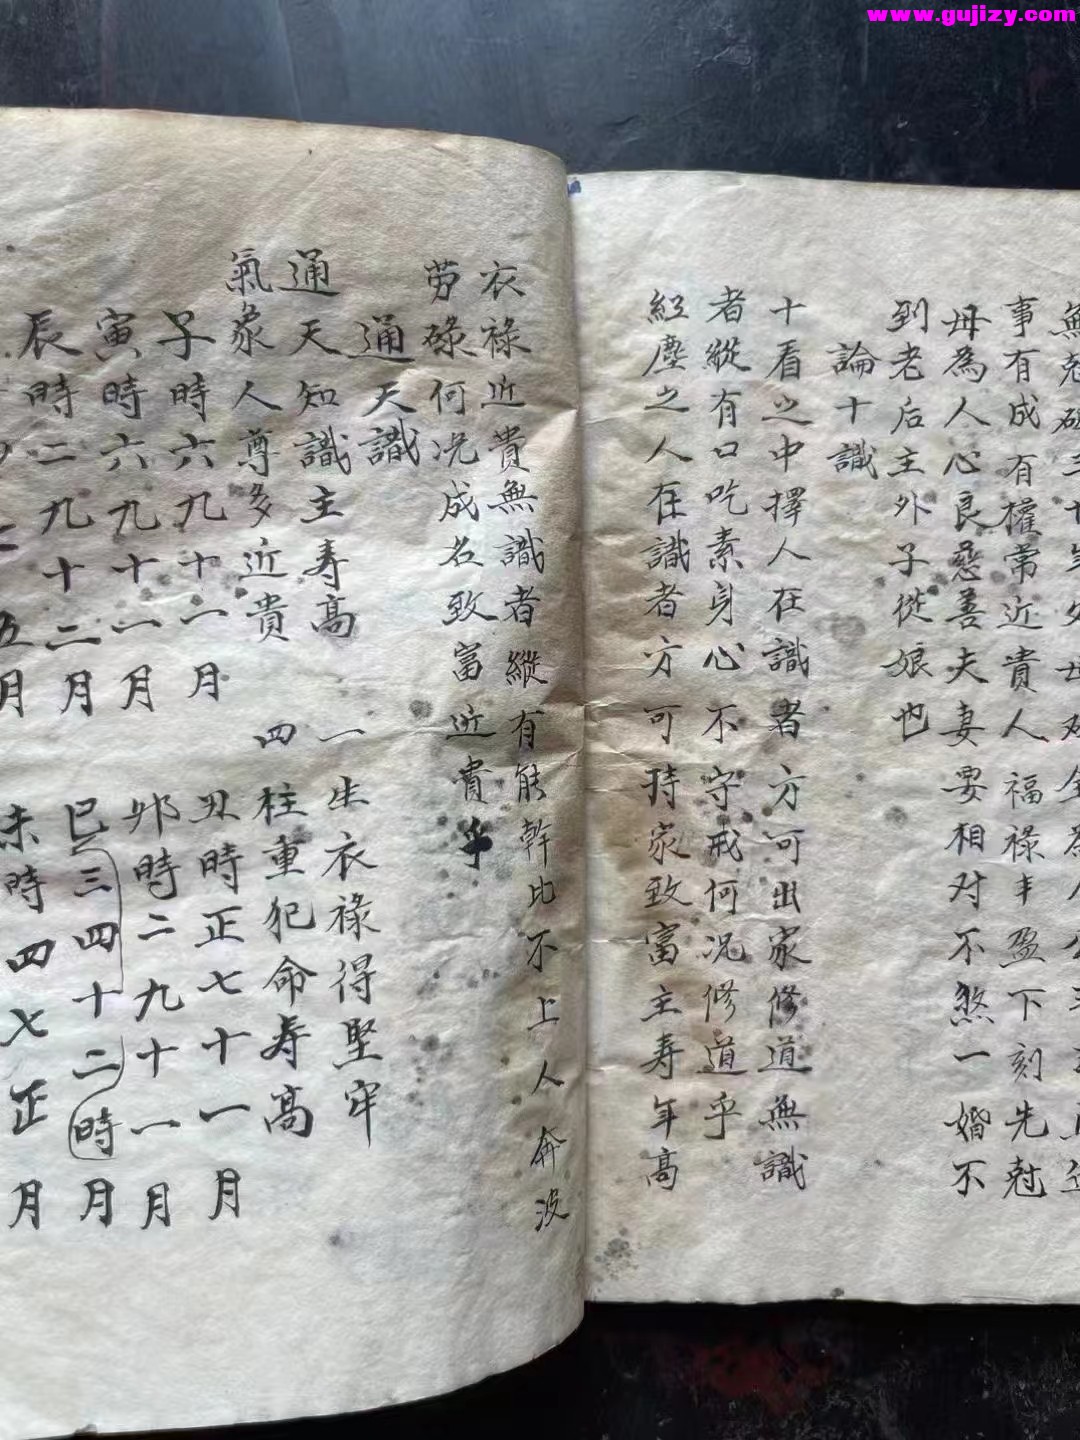 www.gujizy.com
事有成有權常近貴人福禄丰盈下刻先尅
母為人心良慈善夫妻要相对不煞一婚不
到老后主外子從娘也
論十識
十看之中擇人在識者方可出家修道無識
者縱有口吃素身心不守戒何况修道乎
紅塵之人在識者方可持家致富主寿年高
衣祿近貴無識者縱有能幹比不上人奔波
劳碌何况成名致富近貴乎
通天識
通天知識主寿高 一生衣祿得堅牢
氣象人尊多近貴 四柱重犯命寿高
子時六九十一月 丑時正七十一月
寅時六九十一月 卯時二九十一月
辰時二九十二月 巳三四十二時月
五月 未時四七正月